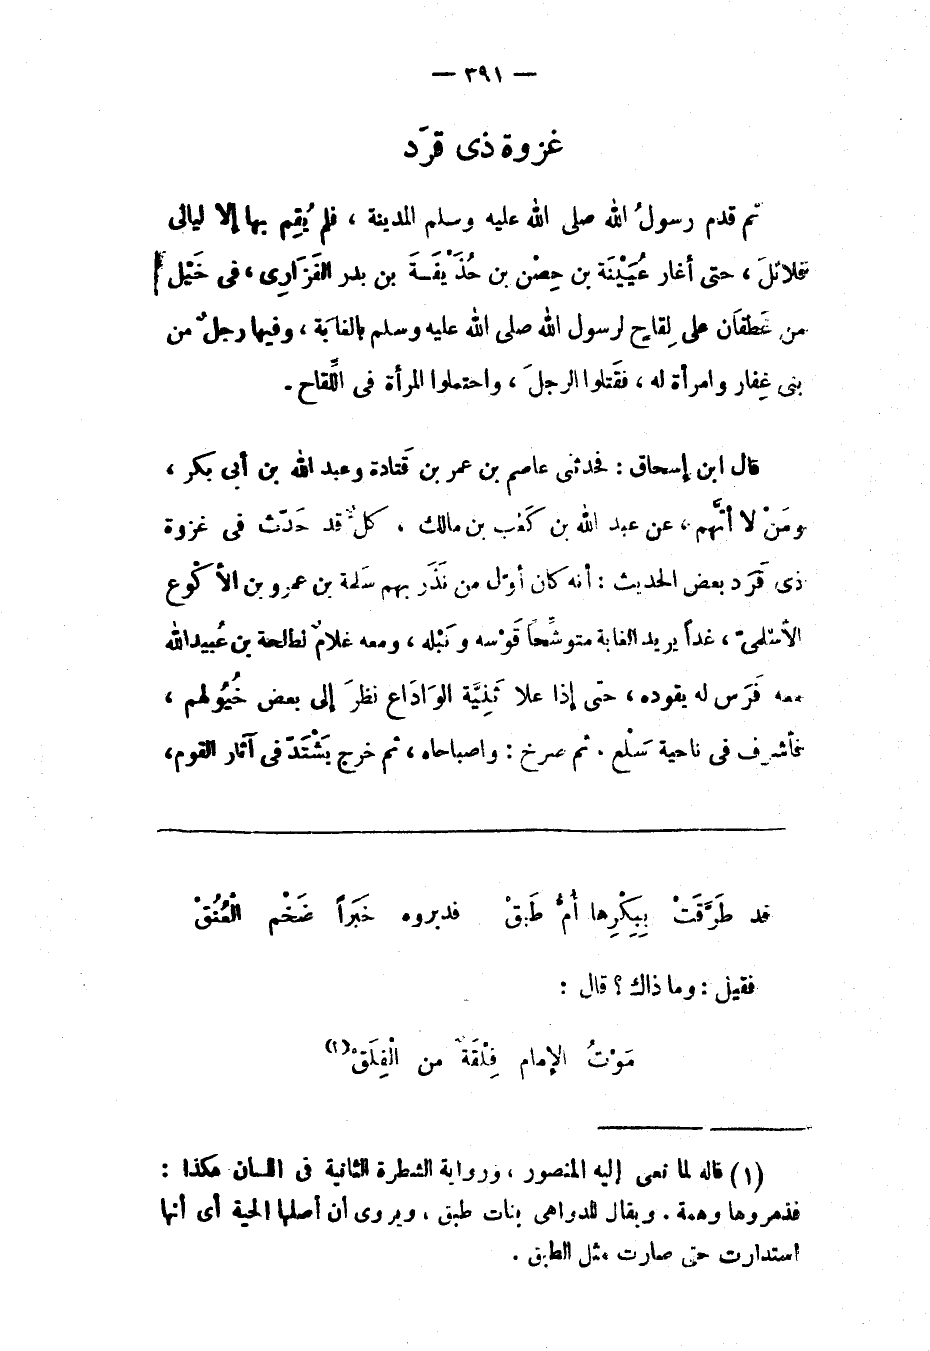 — ٣٩١ —
غزوة ذى قرَد
ثم قدم رسولُ الله صلى الله عليه وسلم المدينة ، فلم يُقِم بها إلا ليالى
قلائلَ ، حتى أغار عُيَيْنَة بن حِصْن بن حُذَيْفَة بن بدر الفَزَارِى ، فى خَيْل
من غَطفَان على لِقاح لرسول الله صلى الله عليه وسلم بالغابة ، وفيها رجلٌ من
بنى غِفار وامرأة له ، فقَتلوا الرجلَ ، واحتملوا المرأة فى اللِّقاح .
قال ابن إسحاق : فحدثنى عاصم بن عمر بن قَتادة وعبد الله بن أبى بكر ،
ومَنْ لا أتَّهم ، عن عبد الله بن كَعْب بن مالك ، كلٌّ قد حَدّث فى غزوة
ذى قَرَد بعض الحديث : أنه كان أوّل من نَذَر بهم سَلمة بن عمرو بن الأكْوع
الأسْلمىّ ، غداً يريد الغابة متوشِّحاً قَوْسه ونَبْله ، ومعه غلامٌ لطلحة بن عُبيدالله
معه فَرَس له يقوده ، حتّى إذا علا ثَنِيَّة الوَادَاع نظرَ إلى بعض خُيُولهم ،
فأشرف فى ناحية سَلْع . ثم صرخ : واصباحاه ، ثم خرج يَشْتَدّ فى آثار القوم ،
قد طَرَّقَتْ بِبِكْرِها أُمُّ طَبَقْ فدبروه خَبَراً ضَخْم الْعُنُقْ
فقيل : وما ذاك ؟ قال :
مَوْتُ الإمام فِلْقَةٌ من الْفِلَقْ(١)
(١) قاله لما نعى إليه المنصور ، ورواية الشطرة الثانية فى اللسان هكذا :
فذمروها وهمة . ويقال للدواهى بنات طبق ، ويروى أن أصلها الحية أى أنها
استدارت حتى صارت مثل الطبق .